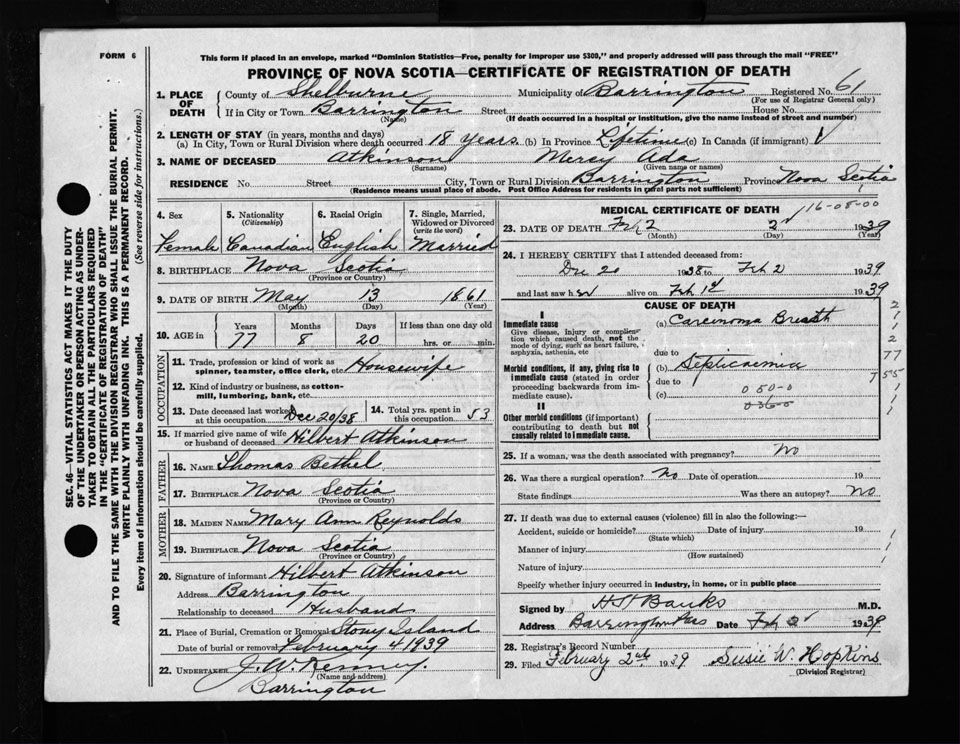 FORM 6
This form if placed in an envelope, marked "Dominion Statistics—Free, penalty for improper use $300," and properly addressed will pass through the mail "FREE"
PROVINCE OF NOVA SCOTIA—CERTIFICATE OF REGISTRATION OF DEATH
1. PLACE OF DEATH
County of Shelburne Municipality of Barrington Registered No. 61
(For use of Registrar General only)
If in City or Town Barrington Street House No.
(Name) (If death occurred in a hospital or institution, give the name instead of street and number)
2. LENGTH OF STAY (in years, months and days)
(a) In City, Town or Rural Division where death occurred 18 years (b) In Province Lifetime (c) In Canada (if immigrant)
3. NAME OF DECEASED Atkinson Mercy Ada
(Surname) (Given name or names)
RESIDENCE No. Street City, Town or Rural Division Barrington Province Nova Scotia
(Residence means usual place of abode. Post Office Address for residents in rural parts not sufficient)
4. Sex Female
5. Nationality (Citizenship) Canadian
6. Racial Origin English
7. Single, Married, Widowed or Divorced (write the word) Married
8. BIRTHPLACE Nova Scotia
(Province or Country)
9. DATE OF BIRTH May 13 1861
(Month) (Day) (Year)
10. AGE in Years Months Days If less than one day old
77 8 20 hrs. or min.
OCCUPATION
11. Trade, profession or kind of work as spinner, teamster, office clerk, etc. Housewife
12. Kind of industry or business, as cotton-mill, lumbering, bank, etc.
13. Date deceased last worked at this occupation Dec 20/38
14. Total yrs. spent in this occupation 53
15. If married give name of wife or husband of deceased Hilbert Atkinson
FATHER
16. NAME Thomas Bethel
17. BIRTHPLACE Nova Scotia
(Province or Country)
MOTHER
18. MAIDEN NAME Mary Ann Reynolds
19. BIRTHPLACE Nova Scotia
(Province or Country)
20. Signature of informant Hilbert Atkinson
Address Barrington
Relationship to deceased Husband
21. Place of Burial, Cremation or Removal Stony Island
Date of burial or removal February 4 1939
22. UNDERTAKER J. W. Kenney
(Name and address)
Barrington
MEDICAL CERTIFICATE OF DEATH
16-08-00
23. DATE OF DEATH Feb 2 2 1939
(Month) (Day) (Year)
24. I HEREBY CERTIFY that I attended deceased from:
Dec 20 1938 to Feb 2 1939
and last saw her alive on Feb 1st 1939
CAUSE OF DEATH
I
Immediate cause
Give disease, injury or complication which caused death, not the mode of dying, such as heart failure, asphyxia, asthenia, etc
(a) Carcinoma Breast
due to
Morbid conditions, if any, giving rise to immediate cause (stated in order proceeding backwards from immediate cause).
(b) Septicaemia
due to
(c) 050-0
036-0
II
Other morbid conditions (if important) contributing to death but not causally related to immediate cause.
25. If a woman, was the death associated with pregnancy? No
26. Was there a surgical operation? No Date of operation 19
State findings Was there an autopsy? No
27. If death was due to external causes (violence) fill in also the following:—
Accident, suicide or homicide? Date of injury 19
(State which)
Manner of injury
(How sustained)
Nature of injury
Specify whether injury occurred in industry, in home, or in public place
Signed by H H Banks M.D.
Address Barrington Pass Date Feb 2 1939
28. Registrar's Record Number
29. Filed February 2nd 1939 Susie W. Hopkins
(Division Registrar)
SEC. 46—VITAL STATISTICS ACT MAKES IT THE DUTY
OF THE UNDERTAKER OR PERSON ACTING AS UNDER-
TAKER TO OBTAIN ALL THE PARTICULARS REQUIRED
IN THE "CERTIFICATE OF REGISTRATION OF DEATH"
AND TO FILE THE SAME WITH THE DIVISION REGISTRAR WHO SHALL ISSUE THE BURIAL PERMIT.
WRITE PLAINLY WITH UNFADING INK. THIS IS A PERMANENT RECORD.
Every item of information should be carefully supplied. (See reverse side for instructions.)